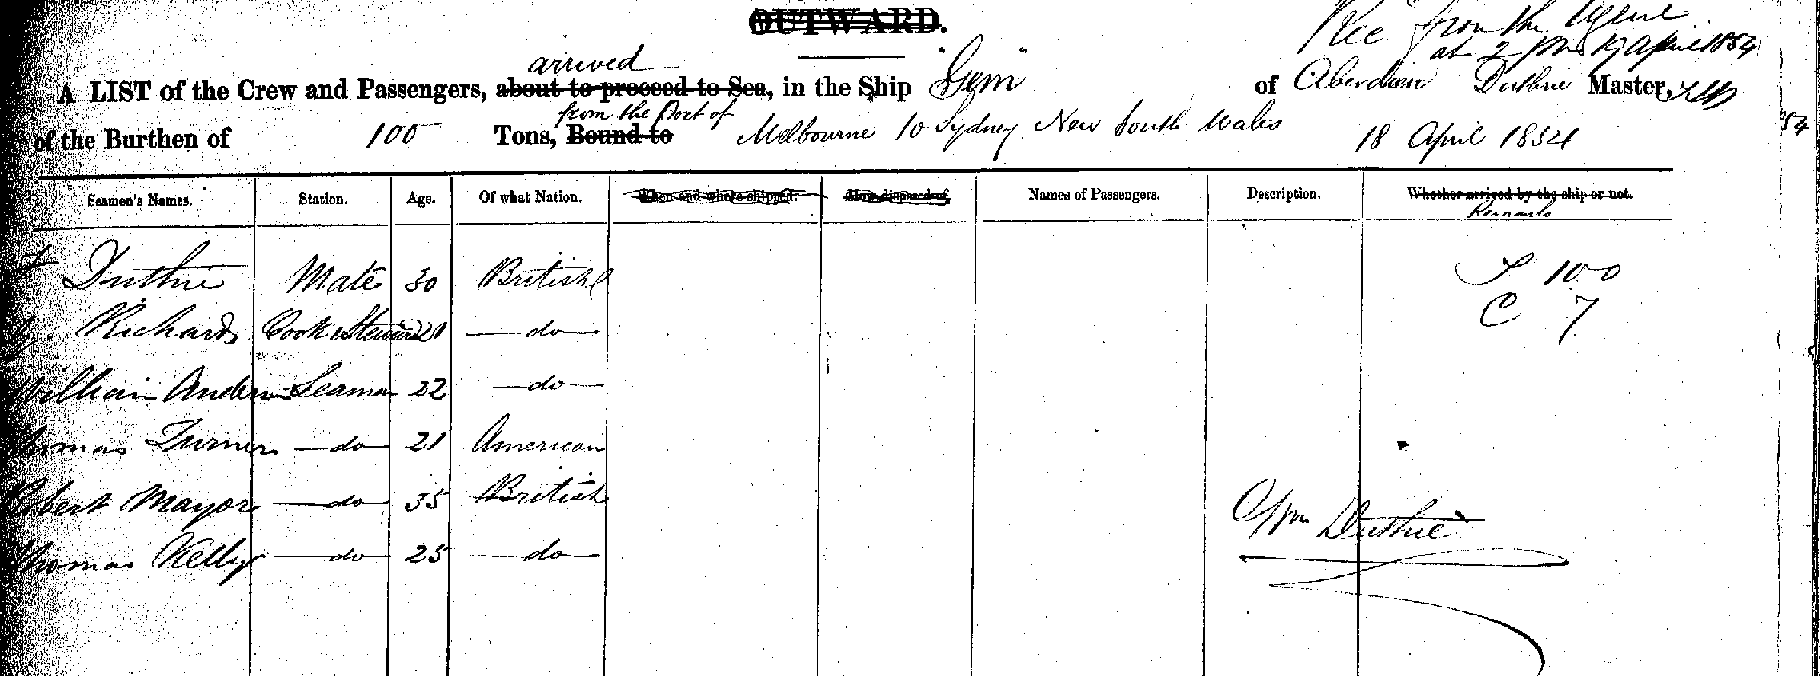 OUTWARD.
Rec from the Agent
at 2 pm 17 April 1854
arrived
A LIST of the Crew and Passengers, about to proceed to Sea, in the Ship "Gem" of Aberdeen Duthie Master,
from the Port of
of the Burthen of 100 Tons, Bound to Melbourne to Sydney New South Wales 18 April 1854
Seamen's Names. Station. Age. Of what Nation. When and where shipped. How disposed of. Names of Passengers. Description. Whether arrived by the ship or not.
Remarks
Duthie Mate 30 British T 100
Richards Cook & Steward 21 do C 7
William Anderson Seaman 22 do
Thomas Turner do 21 American
Robert Mayor do 35 British
Wm Duthie
Thomas Kelly do 25 do